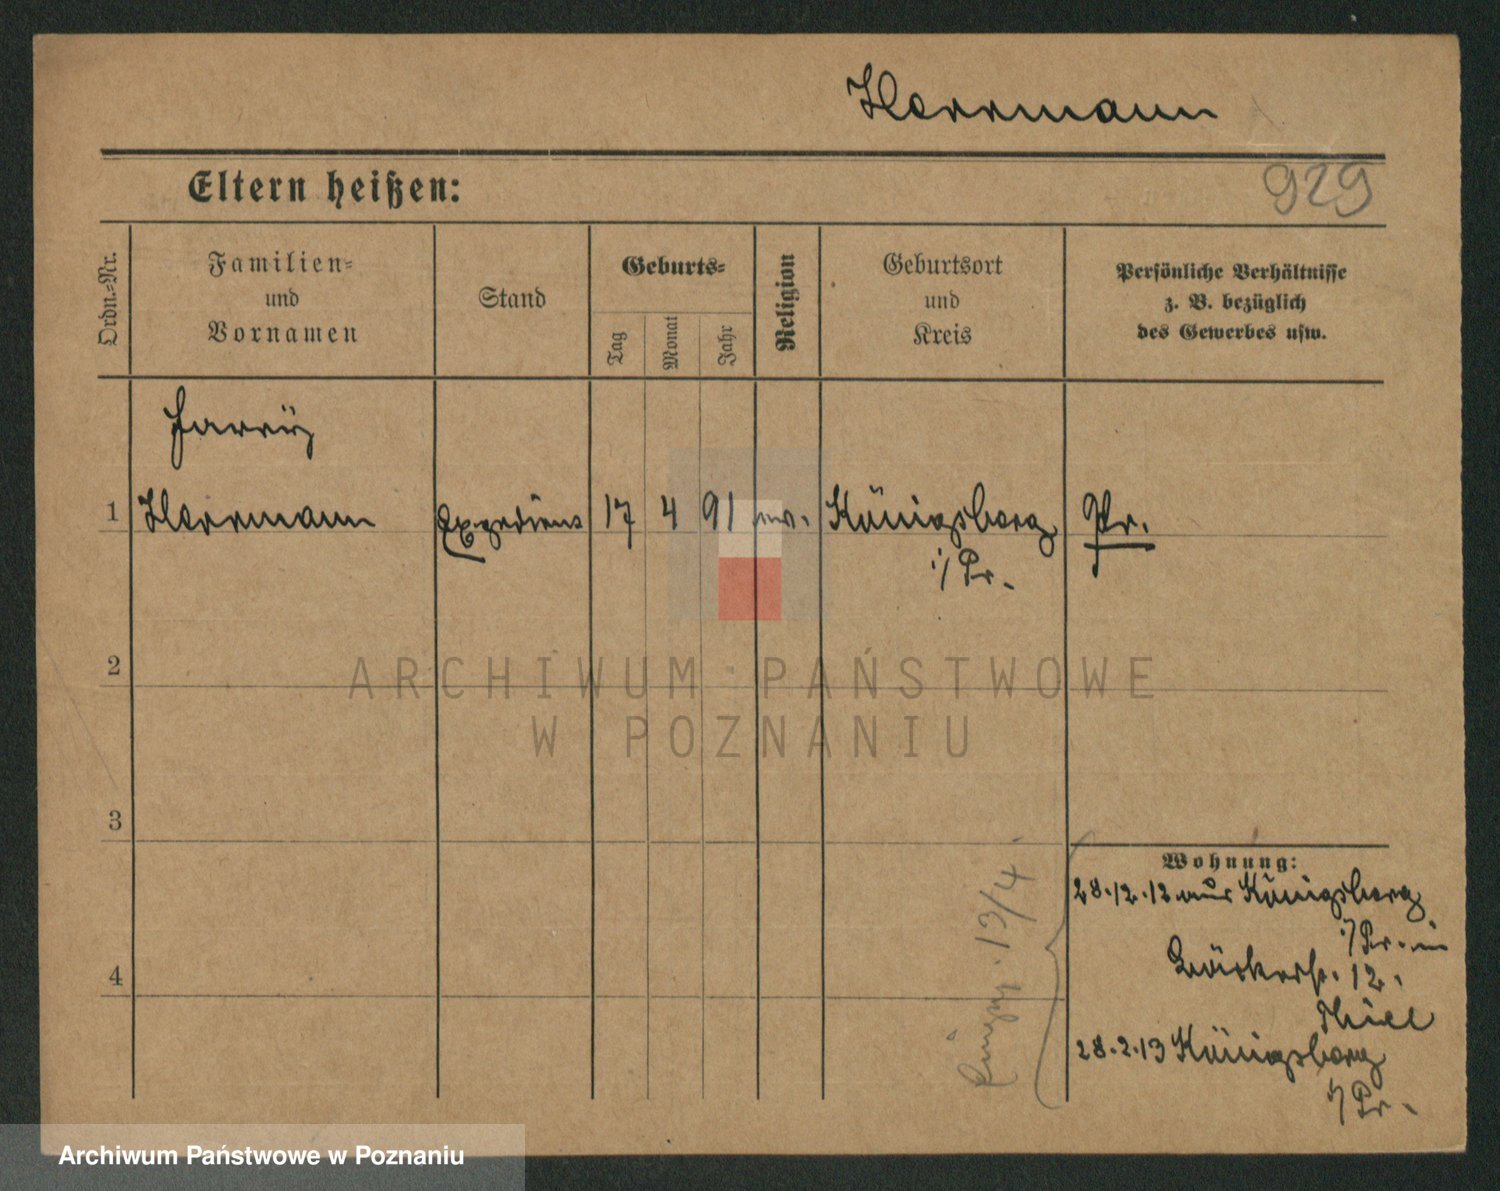 Herrmann
Eltern heißen:
929
Ordn.-Nr.
Familien-
und
Vornamen
Stand
Geburts-
Tag
Monat
Jahr
Religion
Geburtsort
und
Kreis
Persönliche Verhältnisse
z. B. bezüglich
des Gewerbes usw.
Harry
1 Herrmann Expedient 17 4 91 Königsberg Pr.
i/Pr.
2
ARCHIWUM PAŃSTWOWE
W POZNANIU
3
Wohnung:
28.12.12 aus Königsberg
i/Pr. in
Bäckerstr. 12.
4
Thiel
28.2.13 Königsberg
i/Pr.
13/4.
Archiwum Państwowe w Poznaniu